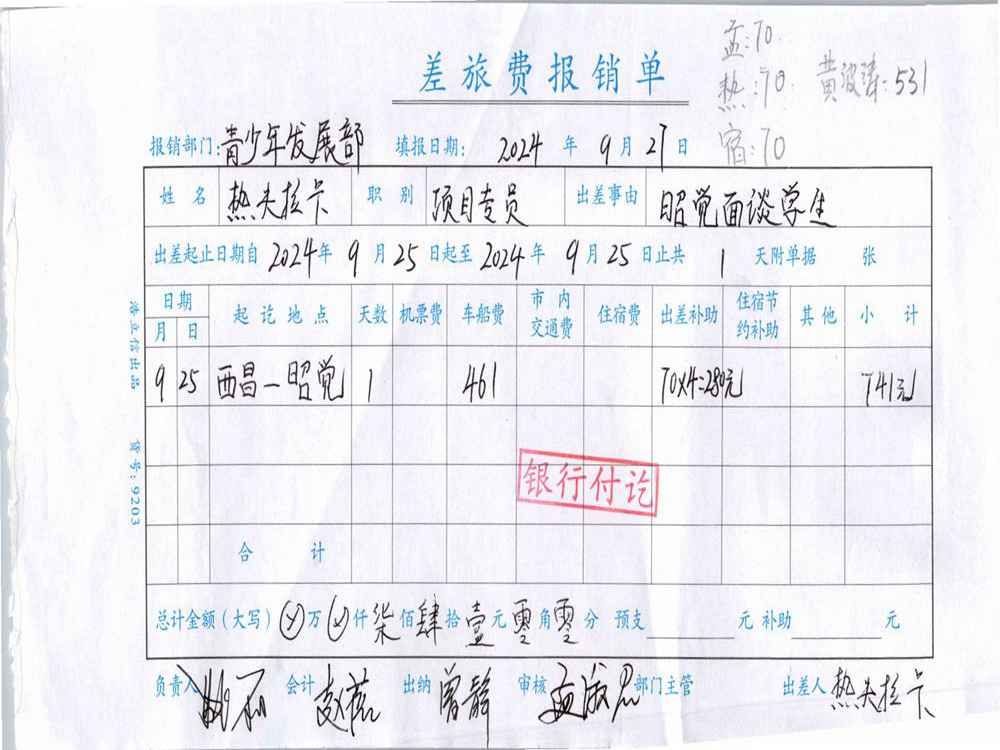 孟:70
差旅费报销单
热:70 黄波涛:531
宿:70
报销部门:青少年发展部 填报日期: 2024 年 9 月 27 日
姓名 热夫拉卡 职别 项目专员 出差事由 昭觉面谈学生
出差起止日期自 2024 年 9 月 25 日起至 2024 年 9 月 25 日止共 1 天附单据 张
日期 起讫地点 天数 机票费 车船费 市内交通费 住宿费 出差补助 住宿节约补助 其他 小计
月 日
9 25 西昌—昭觉 1 461 70×4=280元 741元
银行付讫
合计
总计金额(大写) 万 仟 柒 佰 肆 拾 壹 元 零 角 零 分 预支 元 补助 元
负责人 会计 赵蕊 出纳 曾静 审核 部门主管 出差人 热夫拉卡
浩立信出品 货号:9203